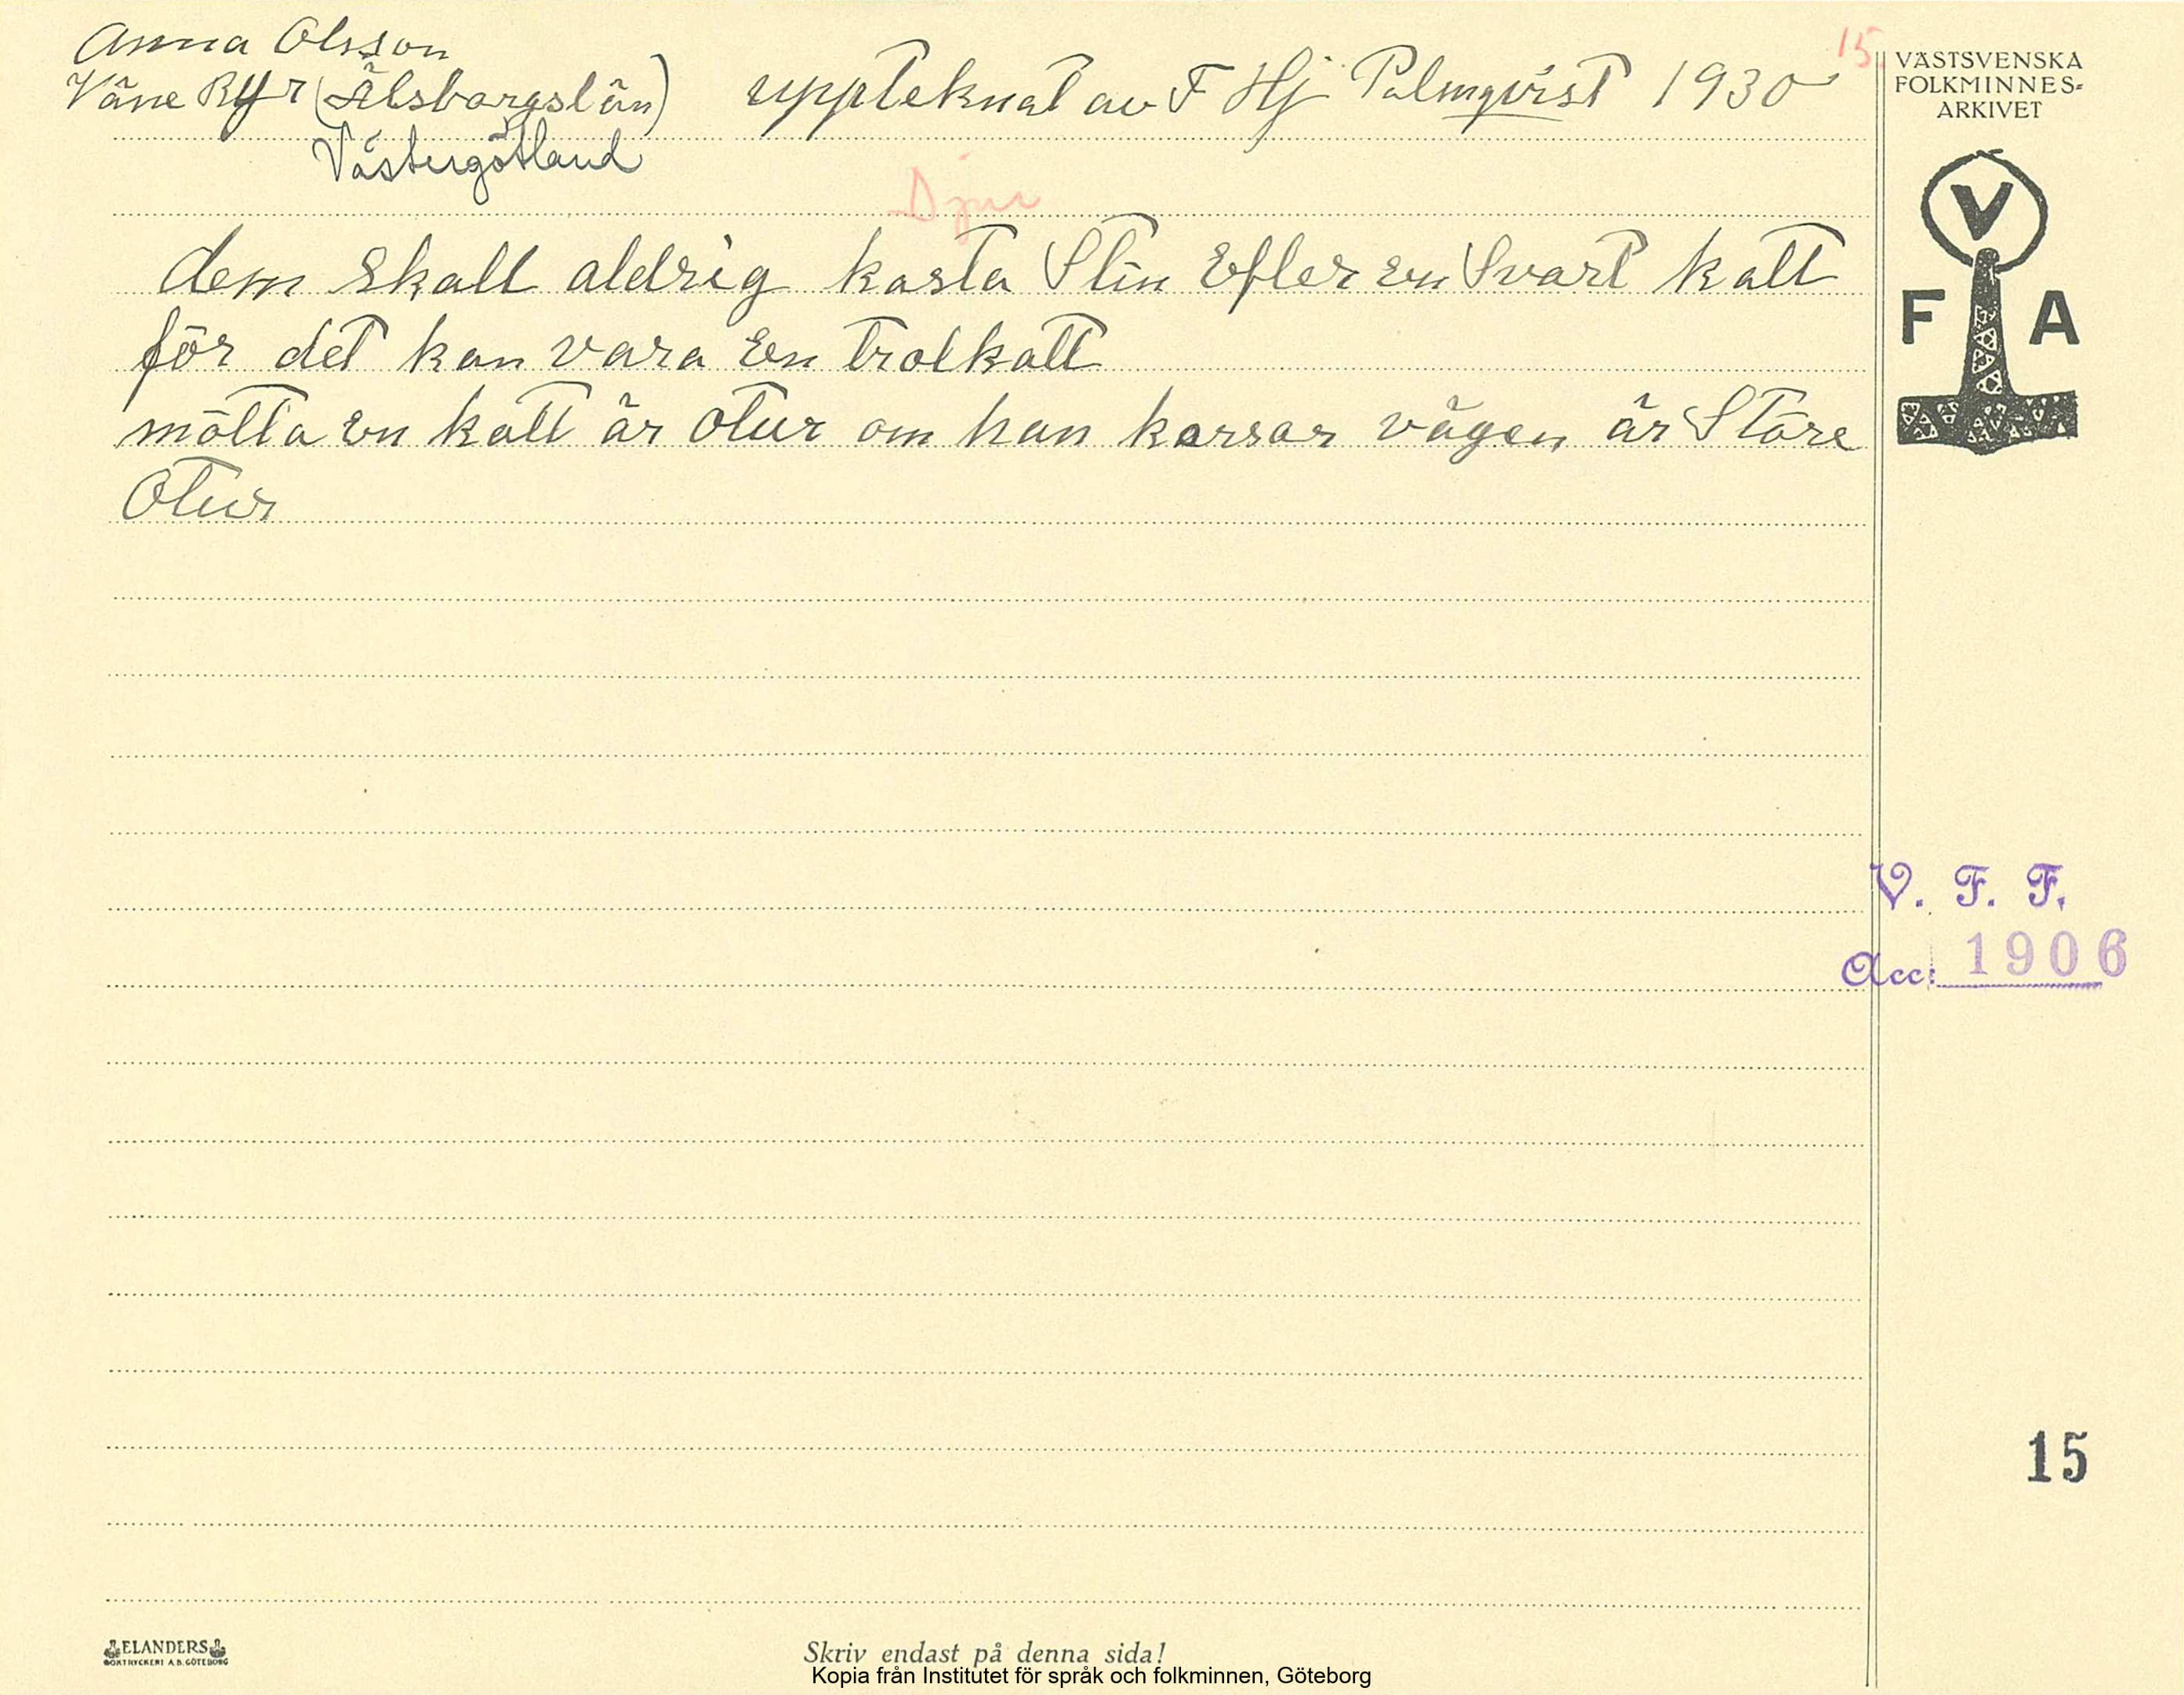 Anna Olsson
Väne Ryr (Älsborgslän) uppteknat av F Hj Palmqvist 1930
Västergötland
15
Djur
dem skall aldrig kasta Stin Efter en Svart katt
för det kan vara En trolkatt
mötta en katt är otur om han korsar vägen är Störe
otur
VÄSTSVENSKA
FOLKMINNES=
ARKIVET
V
F A
V. F. F.
Acc: 1906
15
ELANDERS
BOKTRYCKERI A.B. GÖTEBORG
Skriv endast på denna sida!
Kopia från Institutet för språk och folkminnen, Göteborg